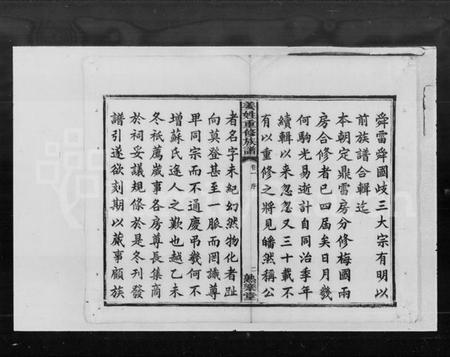 舜雷舜國歧三大宗有明以
前族譜合輯迄
本朝定鼎雷房分修梅國兩
房合修者已四屆矣日月幾
何駒光易逝計自同治季年
續輯以來忽忽又三十載不
有以重修之將見皤然稱公
姜姓重修族譜
卷一 序
二
者名字未紀幻然物化者趾
向莫登甚至一脈而罔識尊
卑同宗而不通慶弔幾何不
增蘇氏途人之歎也越乙未
冬祇薦歲事各房尊長集商
於祠妥議規條於是冬刊發
譜引遂欲刻期以蕆事顧族